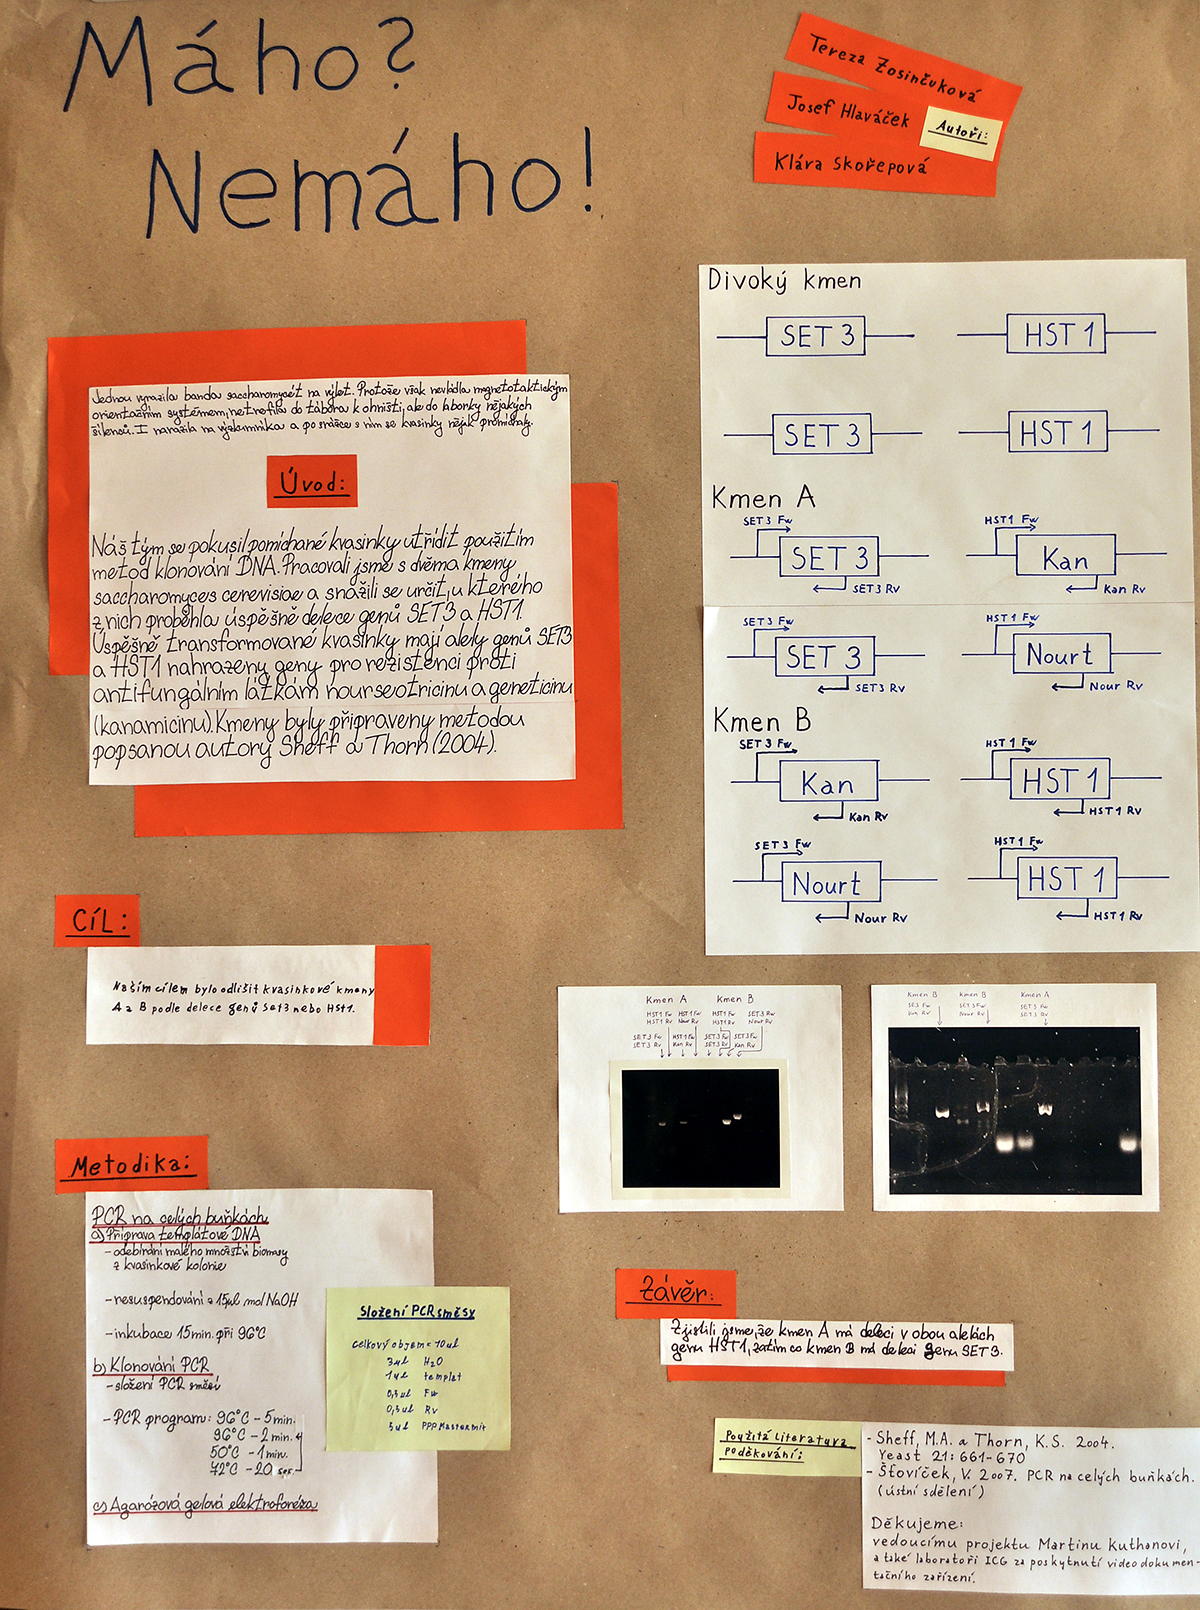 Máho?
Nemáho!
Tereza Zosinčuková
Josef Hlaváček
Autoři:
Klára Skořepová
Jednou vyrazila banda saccharomycét na výlet. Protože však nevládla magnetotaktickým
orientačním systémem, netrefila do tábora k ohništi, ale do laborky nějakých
šílenců. I narazila na výzkumníka a po srážce s ním se kvasinky nějak promíchaly.
Úvod:
Náš tým se pokusil pomíchané kvasinky utřídit použitím
metod klonování DNA. Pracovali jsme s dvěma kmeny
saccharomyces cerevisiae a snážili se určit, u kterého
z nich proběhla úspěšně delece genů SET3 a HST1.
Úspěšně transformované kvasinky mají alely genů SET3
a HST1 nahrazeny geny pro rezistenci proti
antifungálním látkám nourseotricinu a geneticinu
(kanamicinu). Kmeny byly připraveny metodou
popsanou autory Sheff a Thorn (2004).
Divoký kmen
SET 3 HST 1
SET 3 HST 1
Kmen A
SET 3 Fw HST1 Fw
SET 3 Kan
SET3 Rv Kan Rv
SET 3 Fw HST 1 Fw
SET 3 Nourt
SET3 Rv Nour Rv
Kmen B
SET 3 Fw HST 1 Fw
Kan HST 1
Kan Rv HST1 Rv
SET 3 Fw HST1 Fw
Nourt HST 1
Nour Rv HST1 Rv
CÍL:
Naším cílem bylo odlišit kvasinkové kmeny
A a B podle delece genů Set3 nebo HST1.
Kmen A Kmen B
HST1 Fw HST1 Fw HST1 Fw SET3 Fw
HST1 Rv Nour Rv HST1 Rv Nour Rv
SET3 Fw HST1 Fw SET3 Fw SET3 Fw
SET3 Rv Kan Rv SET3 Rv Kan Rv
Kmen B Kmen B Kmen A
SE3 Fw SET3 Fw SET3 Fw
Kan Rv Nour Rv SET3 Rv
Metodika:
PCR na celých buňkách
a) Příprava templátové DNA
- odebírání malého množství biomasy
z kvasinkové kolonie
- resuspendování z 15µl mol NaOH
- inkubace 15min. při 96°C
b) Klonování PCR
- složení PCR směsí
- PCR program: 96°C - 5 min.
96°C - 2 min.
50°C - 1 min.
72°C - 20 sec.
c) Agarózová gelová elektroforéza
Složení PCR směsy
celkový objem = 10 ul
3 ul H2O
1 ul templat
0,5 ul Fw
0,5 ul Rv
5 ul PPP Mastermix
Závěr:
Zjistili jsme, že kmen A má deleci v obou alelách
genu HST1, zatím co kmen B má deleci genu SET3.
Použitá literatura
poděkování:
- Sheff, M.A. a Thorn, K.S. 2004.
Yeast 21: 661-670
- Šťovíček, V. 2007. PCR na celých buňkách.
(ústní sdělení)
Děkujeme:
vedoucímu projektu Martinu Kuthanovi,
a také laboratoři ICG za poskytnutí videodokumen-
tačního zařízení.